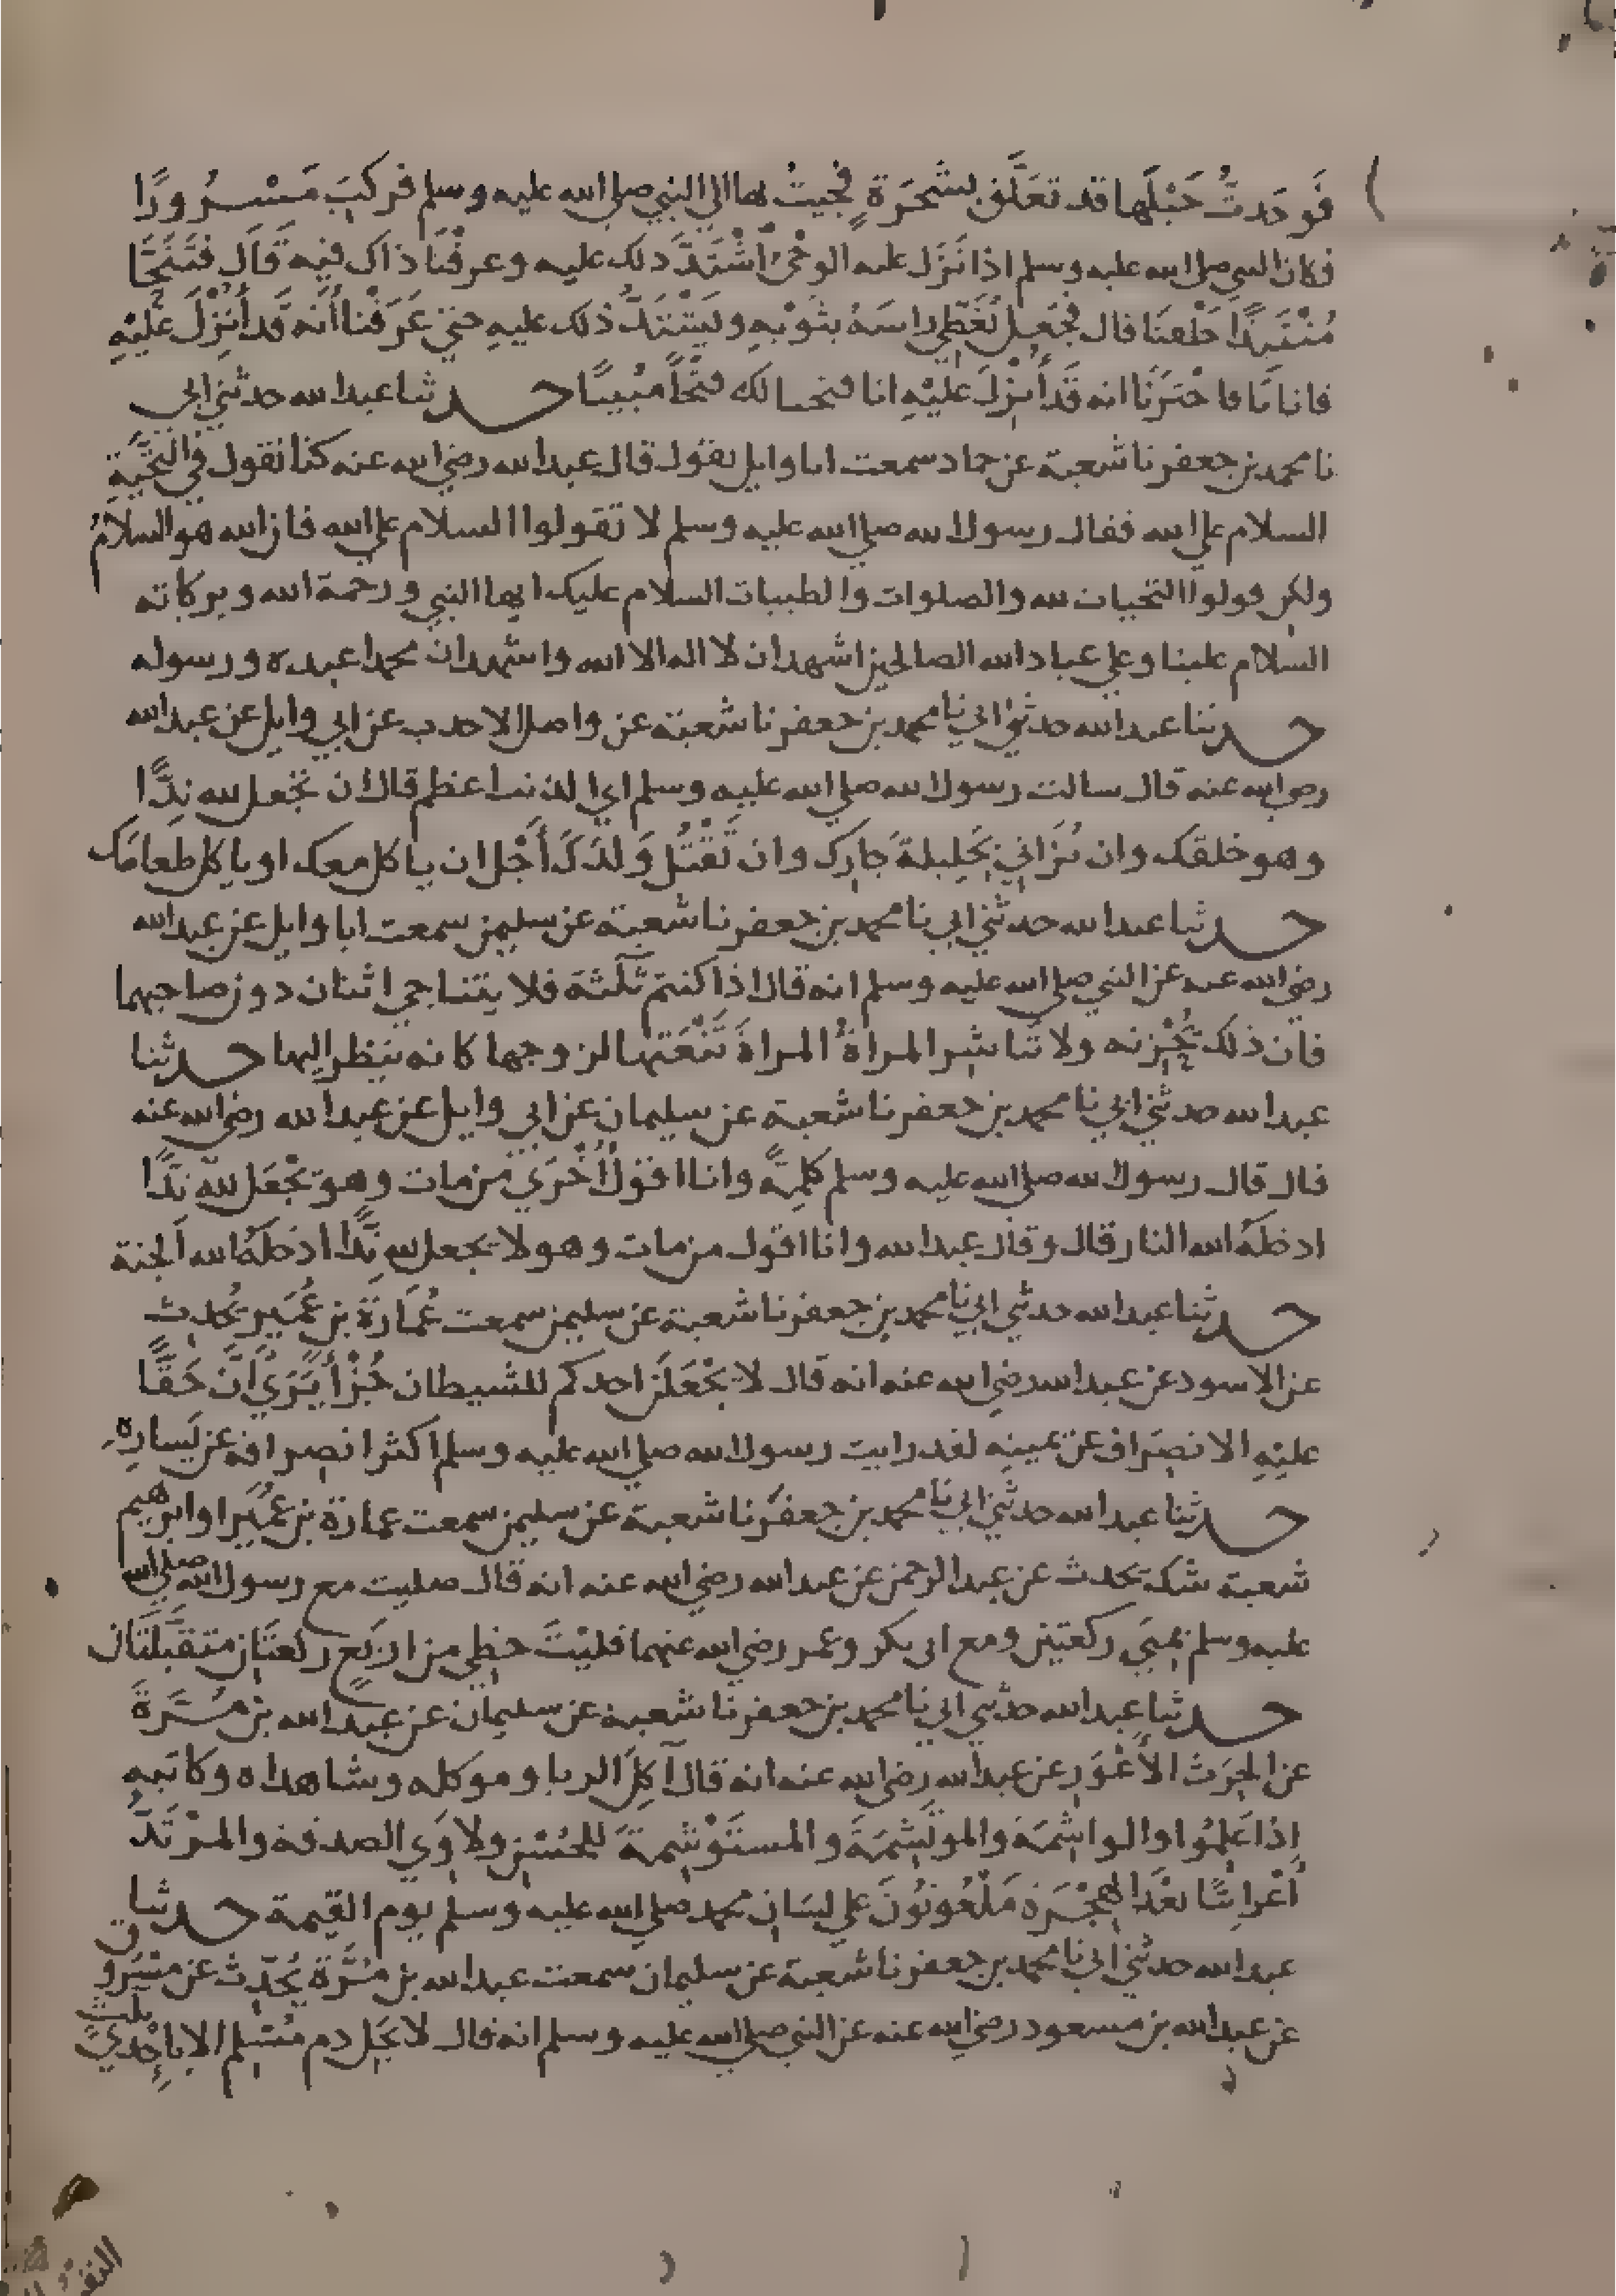 فَوَجَدتُ حَبْلَها قد تعَلَّق بشَجَرَةٍ فجيتُ بها الى النبي صلى الله عليه وسلم فركبَ مَسْرُورًا
فكان النبي صلى الله عليه وسلم اذا نَزَل عليه الوحْيُ اشْتَدَّ ذلك عليه وعرفْنَا ذاك فيه قَالَ فتَنَحَّا
مُنْتَبِذًا خَلْفَنَا قال فجَعل يُغَطِّي راسَهُ بثوْبِهِ ويَشْتَدُّ ذلك عليهِ حتي عَرَفْنا أنه قَد أُنْزِلَ عليْهِ
فاتانَا فاخْبَرَنَا انه قَد أُنْزِلَ عليْهِ انا فتحنا لك فتْحاً مُبينًا حدثنا عبد الله حدثني ابي
نا محمد بن جعفر نا شعبة عن حماد سمعت ابا وايل يقول قال عبد الله رضي الله عنه كنا نقول في التحيَّةِ
السلام علي الله فقال رسول الله صلي الله عليه وسلم لا تقولوا السلام علي الله فان الله هو السلامُ
ولكن قولوا التحيات لله والصلوات والطيبات السلام عليك ايها النبي ورحمة الله وبركاته
السلام علينا وعلي عباد الله الصالحين اشهد ان لا اله الا الله واشهد ان محمدا عبده ورسوله
حدثنا عبد الله حدثني ابي نا محمد بن جعفر نا شعبة عن واصل الاحدب عن ابي وايل عن عبد الله
رضي الله عنه قال سالت رسول الله صلي الله عليه وسلم اي الذنب اعظم قال ان تجعل لله نِدًّا
وهو خلقك وان تُزَاني بحَلِيلة جَارِك وان تَقْتُل وَلدَكَ أَجْل ان ياكل معك او ياكل طعامَك
حدثنا عبد الله حدثني ابي نا محمد بن جعفر نا شعبة عن سليمن سمعت ابا وايل عن عبد الله
رضي الله عنه عن النبي صلي الله عليه وسلم انه قال اذا كنتم ثلثة فلا يتناجي اثنان دون صاحبهما
فان ذلك يُحْزِنه ولا تباشر المراةُ المراةَ تَنْعَتها لزوجها كانه ينظر اليها حدثنا
عبد الله حدثني ابي نا محمد بن جعفر نا شعبة عن سليمان عن ابي وايل عن عبد الله رضي الله عنه
قال قال رسول الله صلي الله عليه وسلم كلِمَةً وانا اقول أُخْرَي من مات وهو يجْعَل لله نِدًّا
ادخلَهُ الله النار قال وقال عبد الله وانا اقول من مات وهو لا يجعل لله نِدًّا ادخلَهُ الله الجنة
حدثنا عبد الله حدثني ابي نا محمد بن جعفر نا شعبة عن سليمن سمعت عُمَارَة بن عُمَيرٍ يُحدث
عن الاسود عن عبد الله رضي الله عنه انه قال لا يَجْعَلَن احدكم للشيطان جُزْأً يَرَي أَنَّ حَقًّا
عليْهِ الانصِرَاف عن يمينِه لقد رايت رسول الله صلي الله عليه وسلم اكثر انصرافه عن يَسارِهِ
حدثنا عبد الله حدثني ابي نا محمد بن جعفر نا شعبة عن سليمن سمعت عمارة بن عُمَيْر او ابرهيم
شعبة شك يحدث عن عبد الرحمن عن عبد الله رضي الله عنه انه قال صليت مع رسول الله صلي الله
عليه وسلم بمِنَي ركعتين ومع ابي بكر وعمر رضي الله عنهما فليْتَ حظِّي من ارْبَعٍ ركعتَانِ متقبَّلتَان
حدثنا عبد الله حدثني ابي نا محمد بن جعفر نا شعبة عن سليمان عن عبد الله بن مُرَّةَ
عن الحرث الأَعْوَرِ عن عبد الله رضي الله عنه انه قال آكِلُ الربا وموكله وشاهداه وكاتبه
إذا عَلِمُوا والواشِمَة والموتَشِمَةَ والمستَوْشِمةَ للحُسْن ولاوِي الصدقة والمرْتَدُّ
أَعْرابيًّا بعْدَ الهِجْرَة مَلْعُونُونَ علي لسَانِ محمد صلي الله عليه وسلم يوم القيمة حدثنا
عبد الله حدثني ابي نا محمد بن جعفر نا شعبة عن سليمان سمعت عبد الله بن مُرَّة يُحَدِّث عن مسْروق
عن عبد الله بن مسعود رضي الله عنه عن النبي صلي الله عليه وسلم انه قال لا يَحِل دم مُسْلِم الا باِحْدَي ثلث